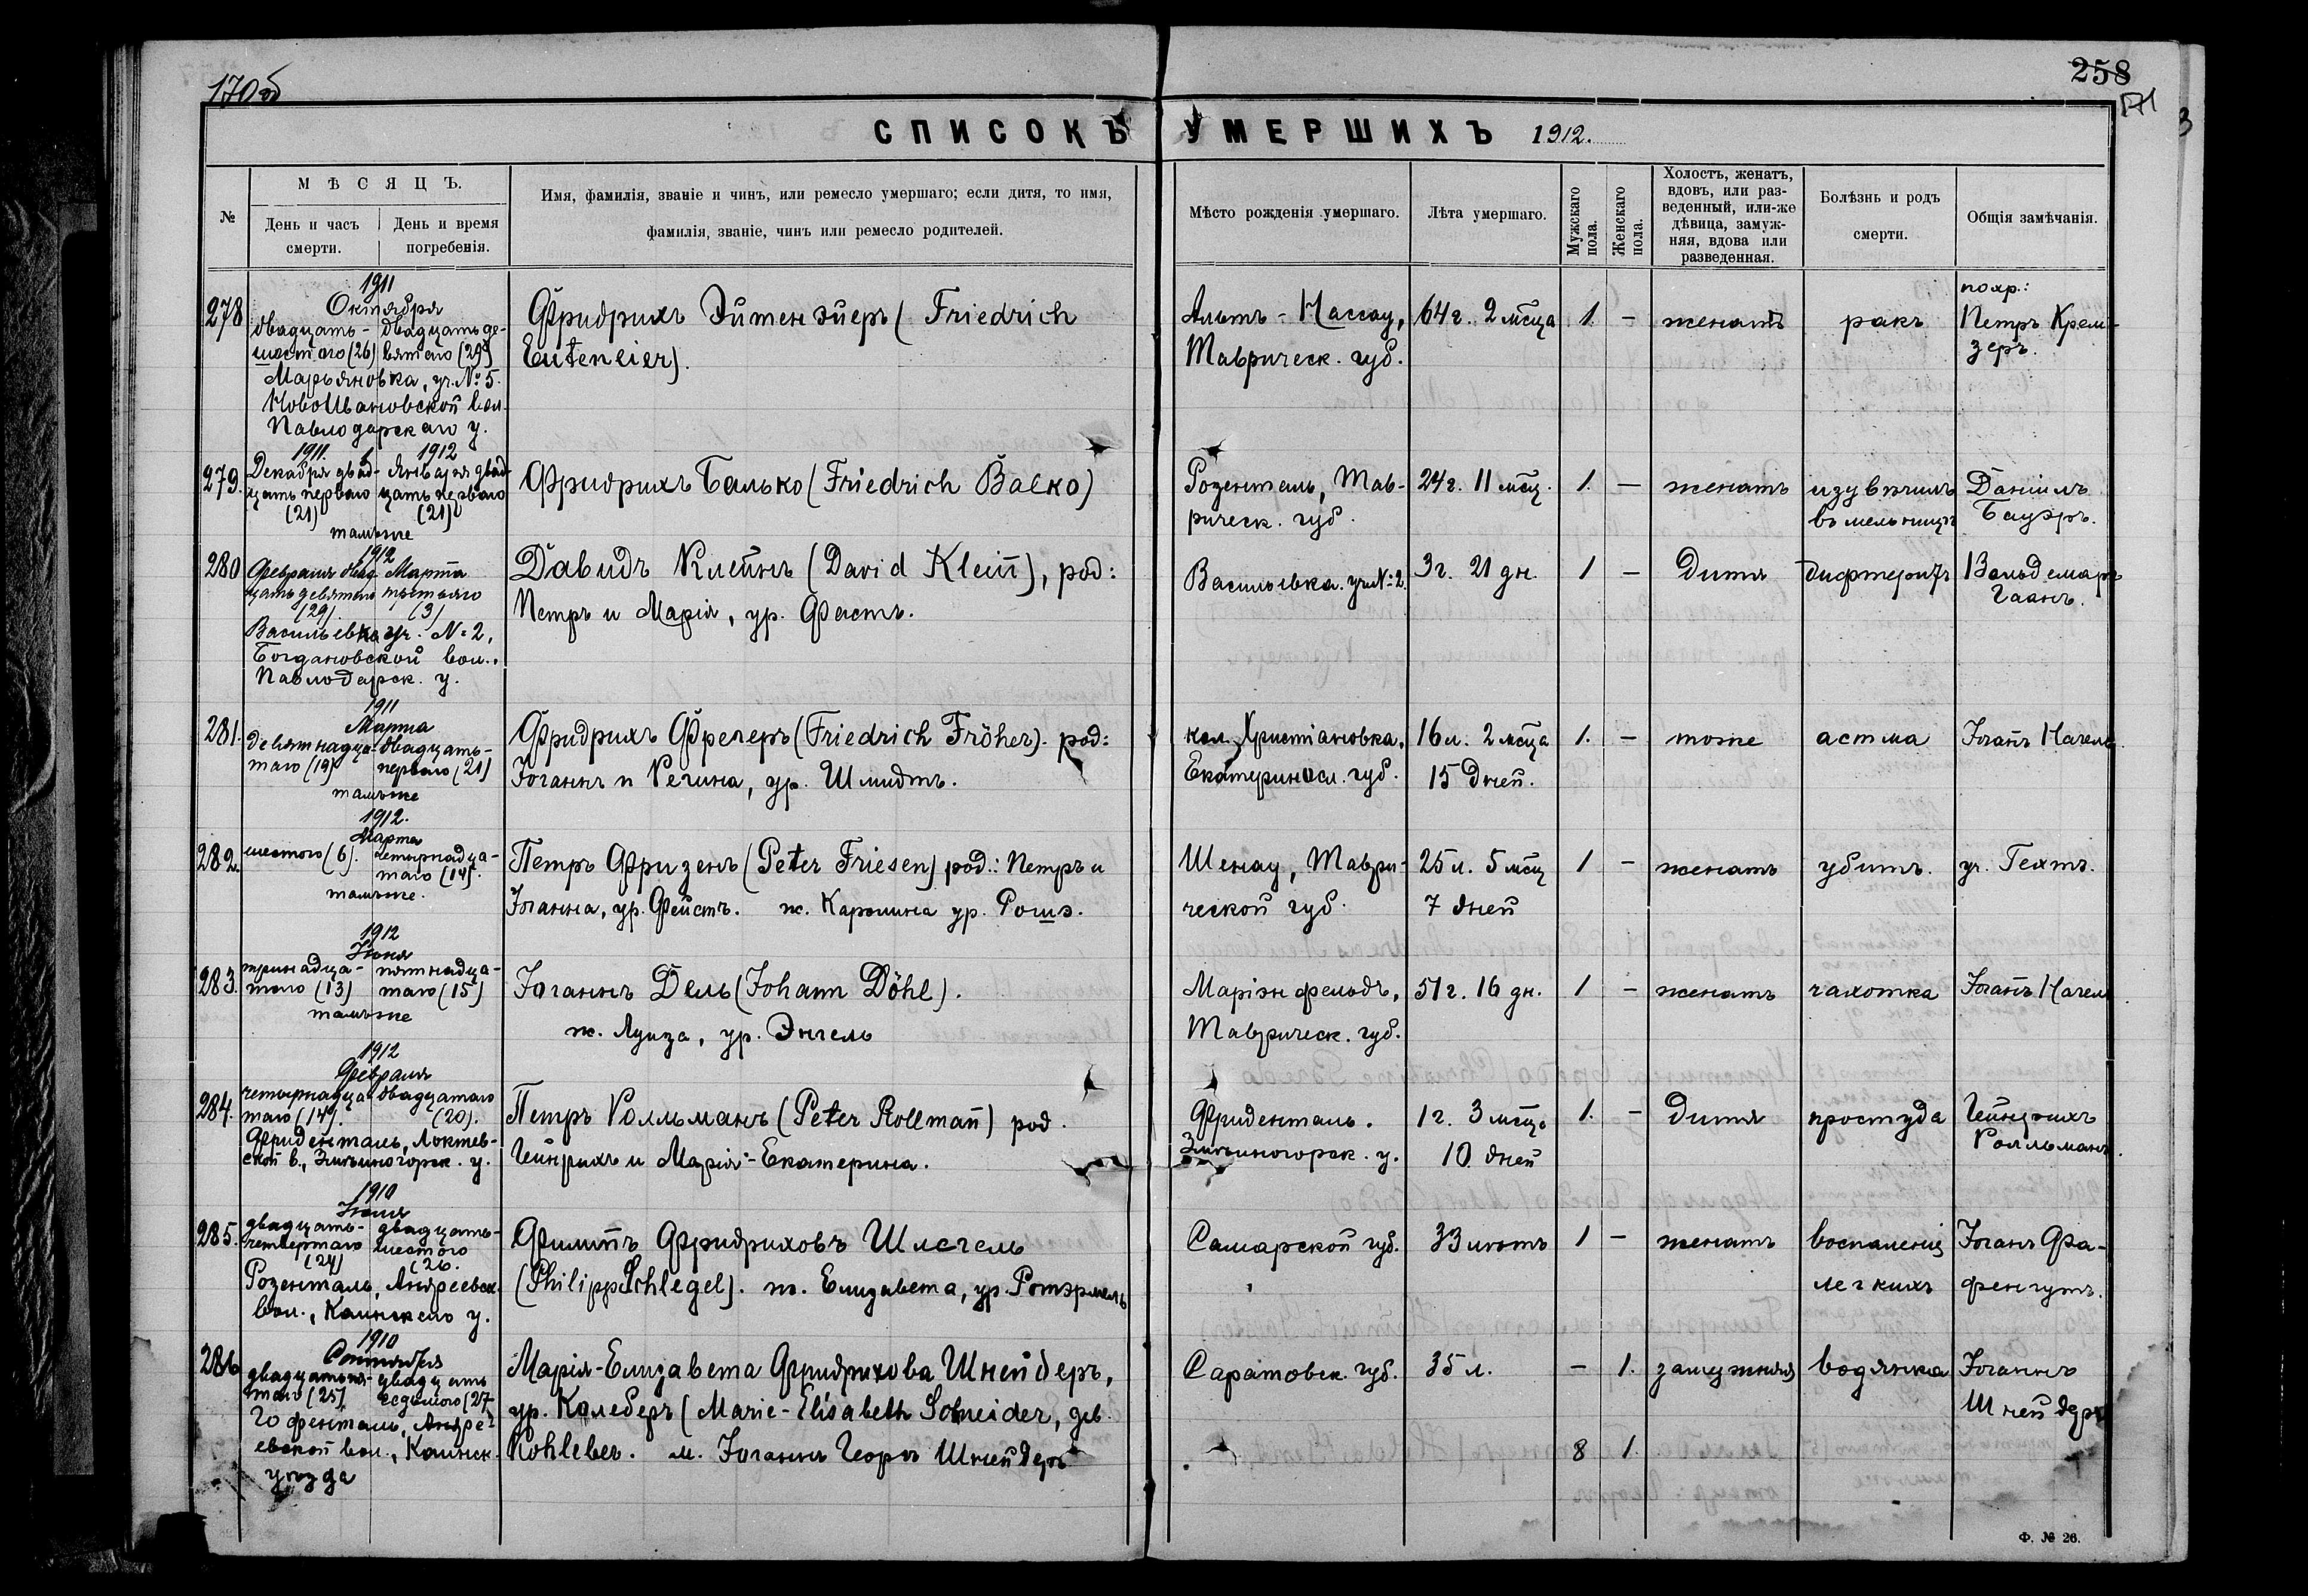 170об
258
171
СПИСОКЪ УМЕРШИХЪ 1912.
№
МѢСЯЦЪ.
День и часъ смерти.
День и время погребенія.
Имя, фамилія, званіе и чинъ, или ремесло умершаго; если дитя, то имя,
фамилія, званіе, чинъ или ремесло родителей.
Мѣсто рожденія умершаго.
Лѣта умершаго.
Мужскаго пола.
Женскаго пола.
Холостъ, женатъ,
вдовъ, или раз-
веденный, или-же
дѣвица, замуж-
няя, вдова или
разведенная.
Болѣзнь и родъ
смерти.
Общія замѣчанія.
278
1911
Октября
двадцать- шестого (26)
двадцать де- вятаго (29)
Марьяновка, уч. № 5.
НовоИвановской вол.
Павлодарскаго у.
Фридрихъ Эйтенэйеръ (Friedrich
Euteneier).
Альтъ-Нассау,
Таврическ. губ.
64 г. 2 мсца
1.
-
женатъ
ракъ
похр.:
Петръ Крем-
зеръ.
279.
1911.
Декабря двад-
цать перваго
(21)
1912
Января двад-
цать перваго
(21)
тамъ же
Фридрихъ Балько (Friedrich Balko)
Розенталь, Тав-
рическ. губ.
24 г. 11 мсц.
1.
-
женатъ
изувѣчилъ
въ мельницѣ
Даніилъ
Бауэръ.
280
1912
Февраля двад-
цать девятаго
(29)
Марта
третьяго
(3)
Васильевка уч. № 2,
Богдановской вол.,
Павлодарск. у.
Давидъ Клейнъ (David Klein), род:
Петръ и Марія, ур. Фастъ.
Васильевка. уч. № 2.
3 г. 21 дн.
1
-
Дитя
дифтеритъ
Вольдемаръ
Гаанъ.
281.
1911
Марта
девятнадца-
таго (19)
двадцать-
перваго (21)
тамъ же
Фридрихъ Фрегеръ (Friedrich Fröher). род:
Іоганнъ и Регина, ур. Шмидтъ.
кол. Христіановка,
Екатериносл. губ.
16 л. 2 мсца
15 дней.
1.
-
тоже
астма
Іоганъ Нагель
282.
1912.
Марта
шестого (6).
четырнадца-
таго (14).
тамъ же.
Петръ Фризенъ (Peter Friesen) род.: Петръ и
Іоганна, ур. Фейстъ. ж. Каролина ур. Рошэ.
Шенау, Таври-
ческой губ.
25 л. 5 мсц
7 дней
1
-
женатъ
убитъ.
уч. Гехтъ.
283.
1912
Іюня
тринадца-
таго (13)
пятнадца-
таго (15)
тамъ же
Іоганнъ Дель (Johann Döhl).
ж. Луиза, ур. Энгель
Маріэнфельдъ,
Таврическ. губ.
51 г. 16 дн.
1
-
женатъ
чахотка
Іоганъ Нагель.
284.
1912
Февраля
четырнадца-
таго (14).
двадцатаго
(20).
Фриденталь, Локтев-
ской в., Змѣиногорск. у.
ПетръРолльманъ (Peter Rollmañ) род.
Гейнрихъ и Марія-Екатерина.
Фриденталь.
Змѣиногорск. у.
1 г. 3 мсца
10 дней
1.
-
дитя
простуда
Гейнрихъ
Ролльманъ.
285.
1910
двадцать-
четвертаго
(24)
двадцать-
шестого
(26.
Розенталь, Андреевск.
вол., Каинскаго у.
Филиппъ Фридриховъ Шлегель
(Philipp Schlegel). ж. Елизавета, ур. Ротэрмель
Самарской губ.
33 лѣтъ
1
-
женатъ
воспаленіе
легкихъ
Іоганъ Фа-
фенгутъ.
286
1910
Сентября
двадцать пя-
таго (25)
двадцать
седьмого (27
Гофенталь, Андре-
евской вол., Каинск.
уѣзда
Марія-Елизавета Фридрихова Шнейдеръ,
ур. Колеберъ (Marie-Elisabeth Schneider, геб.
Kohleber. м. Іоганнъ Георгъ Шнейдеръ
Саратовск. губ.
35 л.
-
1.
замужняя
водянка
Іоганнъ
Шнейдеръ
8
1.
Ф. № 26.